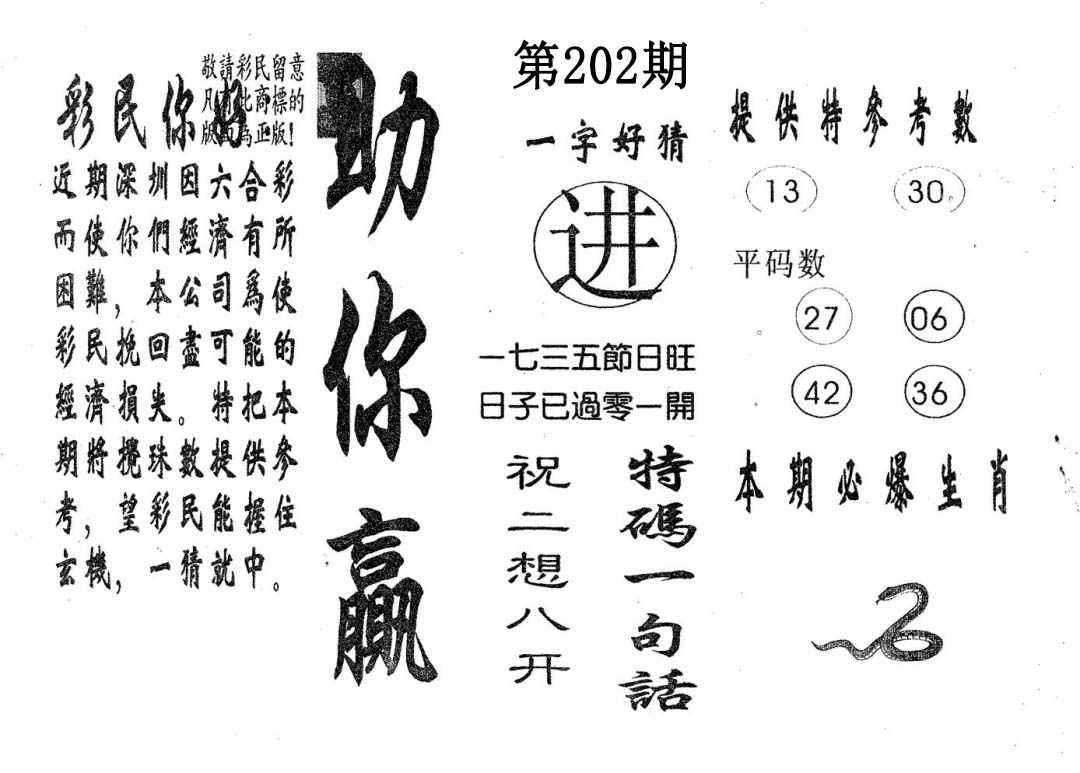 第202期
敬請彩民留意
凡有此商標的
版面為正版!
彩民你好
近期深圳因六合彩
而使你們經濟有所
困難，本公司爲使
彩民挽回盡可能的
經濟損失。特把本
期將攪珠數提供參
考，望彩民能握住
玄機，一猜就中。
助你赢
一字好猜
进
一七三五節日旺
日子已過零一開
特碼一句話
祝二想八开
提供特參考數
13 30
平码数
27 06
42 36
本期必爆生肖